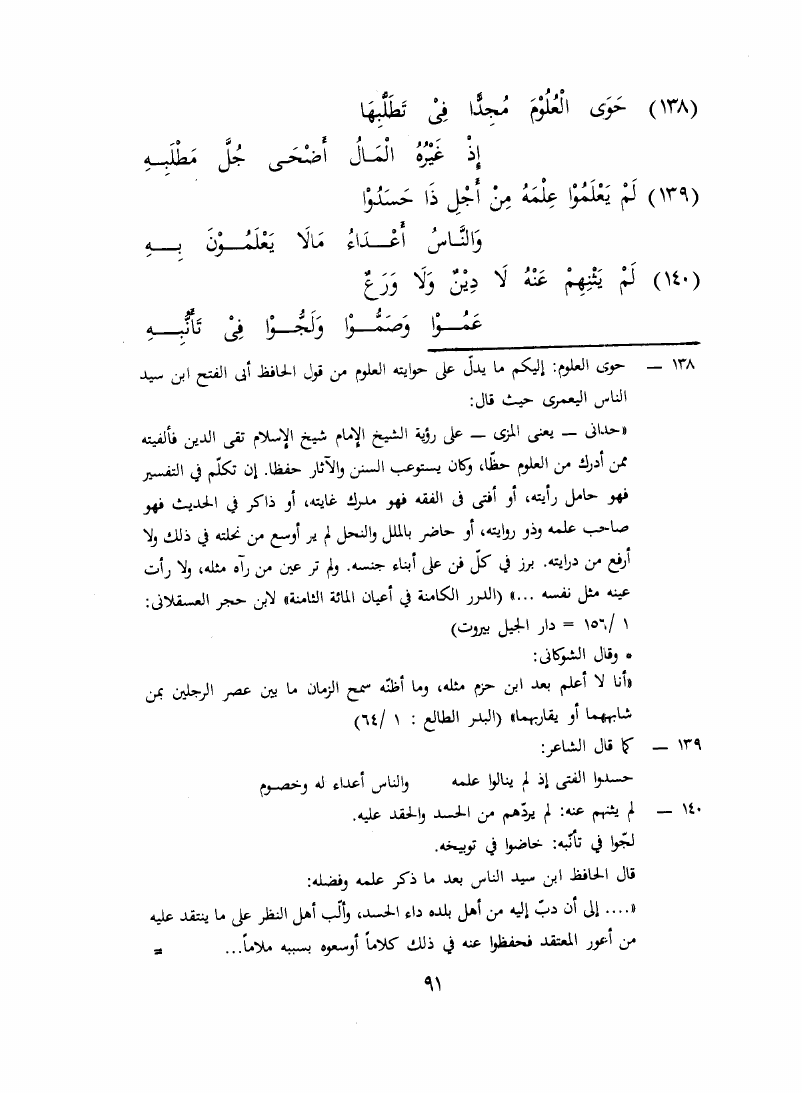 (١٣٨) حَوَى الْعُلُوْمَ مُجِدًّا فِىْ تَطَلُّبِهَا
إِذْ غَيْرُهُ الْمَالُ أَضْحَى جُلَّ مَطْلَبِـهِ
(١٣٩) لَمْ يَعْلَمُوْا عِلْمَهُ مِنْ أَجْلِ ذَا حَسَدُوْا
وَالنَّـاسُ أَعْـدَاءُ مَالَا يَعْلَمُـوْنَ بِـهِ
(١٤٠) لَمْ يَثْنِهِمْ عَنْهُ لَا دِيْنٌ وَلَا وَرَعٌ
عَمُـوْا وَصَمُّـوْا وَلَجُّـوْا فِىْ تَأَنُّبِـهِ
١٣٨ — حوى العلوم: إليكم ما يدلّ على حوايته العلوم من قول الحافظ أبى الفتح ابن سيد
الناس اليعمرى حيث قال:
«حدانى — يعنى المزى — على رؤية الشيخ الإمام شيخ الإسلام تقى الدين فألفيته
ممن أدرك من العلوم حظّا، وكان يستوعب السنن والآثار حفظا. إن تكلّم في التفسير
فهو حامل رأيته، أو أفتى فى الفقه فهو مدرك غايته، أو ذاكر في الحديث فهو
صاحب علمه وذو روايته، أو حاضر بالملل والنحل لم ير أوسع من نحلته في ذلك ولا
أرفع من درايته. برز في كلّ فن على أبناء جنسه. ولم تر عين من رآه مثله، ولا رأت
عينه مثل نفسه ...» (الدرر الكامنة في أعيان المائة الثامنة» لابن حجر العسقلانى:
١ /١٥٦ = دار الجيل بيروت)
• وقال الشوكانى:
«أنا لا أعلم بعد ابن حزم مثله، وما أظنّه سمح الزمان ما بين عصر الرجلين بمن
شابههما أو يقاربهما» (البدر الطالع : ١ /٦٤)
١٣٩ — كما قال الشاعر:
حسدوا الفتى إذ لم ينالوا علمه والناس أعداء له وخصـوم
١٤٠ — لم يثنهم عنه: لم يردّهم من الحسد والحقد عليه.
لجّوا في تأنّبه: خاضوا في توبيخه.
قال الحافظ ابن سيد الناس بعد ما ذكر علمه وفضله:
«.... إلى أن دبّ إليه من أهل بلده داء الحسد، وألّب أهل النظر على ما ينتقد عليه
من أعور المعتقد فحفظوا عنه في ذلك كلاماً أوسعوه بسببه ملاماً... =
٩١